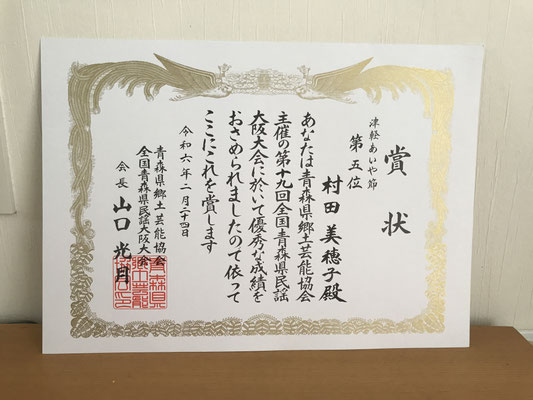 賞状
津軽あいや節
第五位
村田美穂子殿
あなたは青森県郷土芸能協会
主催の第十九回全国青森県民謡
大阪大会に於いて優秀な成績を
おさめられましたので依って
ここにこれを賞します
令和六年二月二十四日
青森県郷土芸能協会
全国青森県民謡大阪大会
会長 山口光月